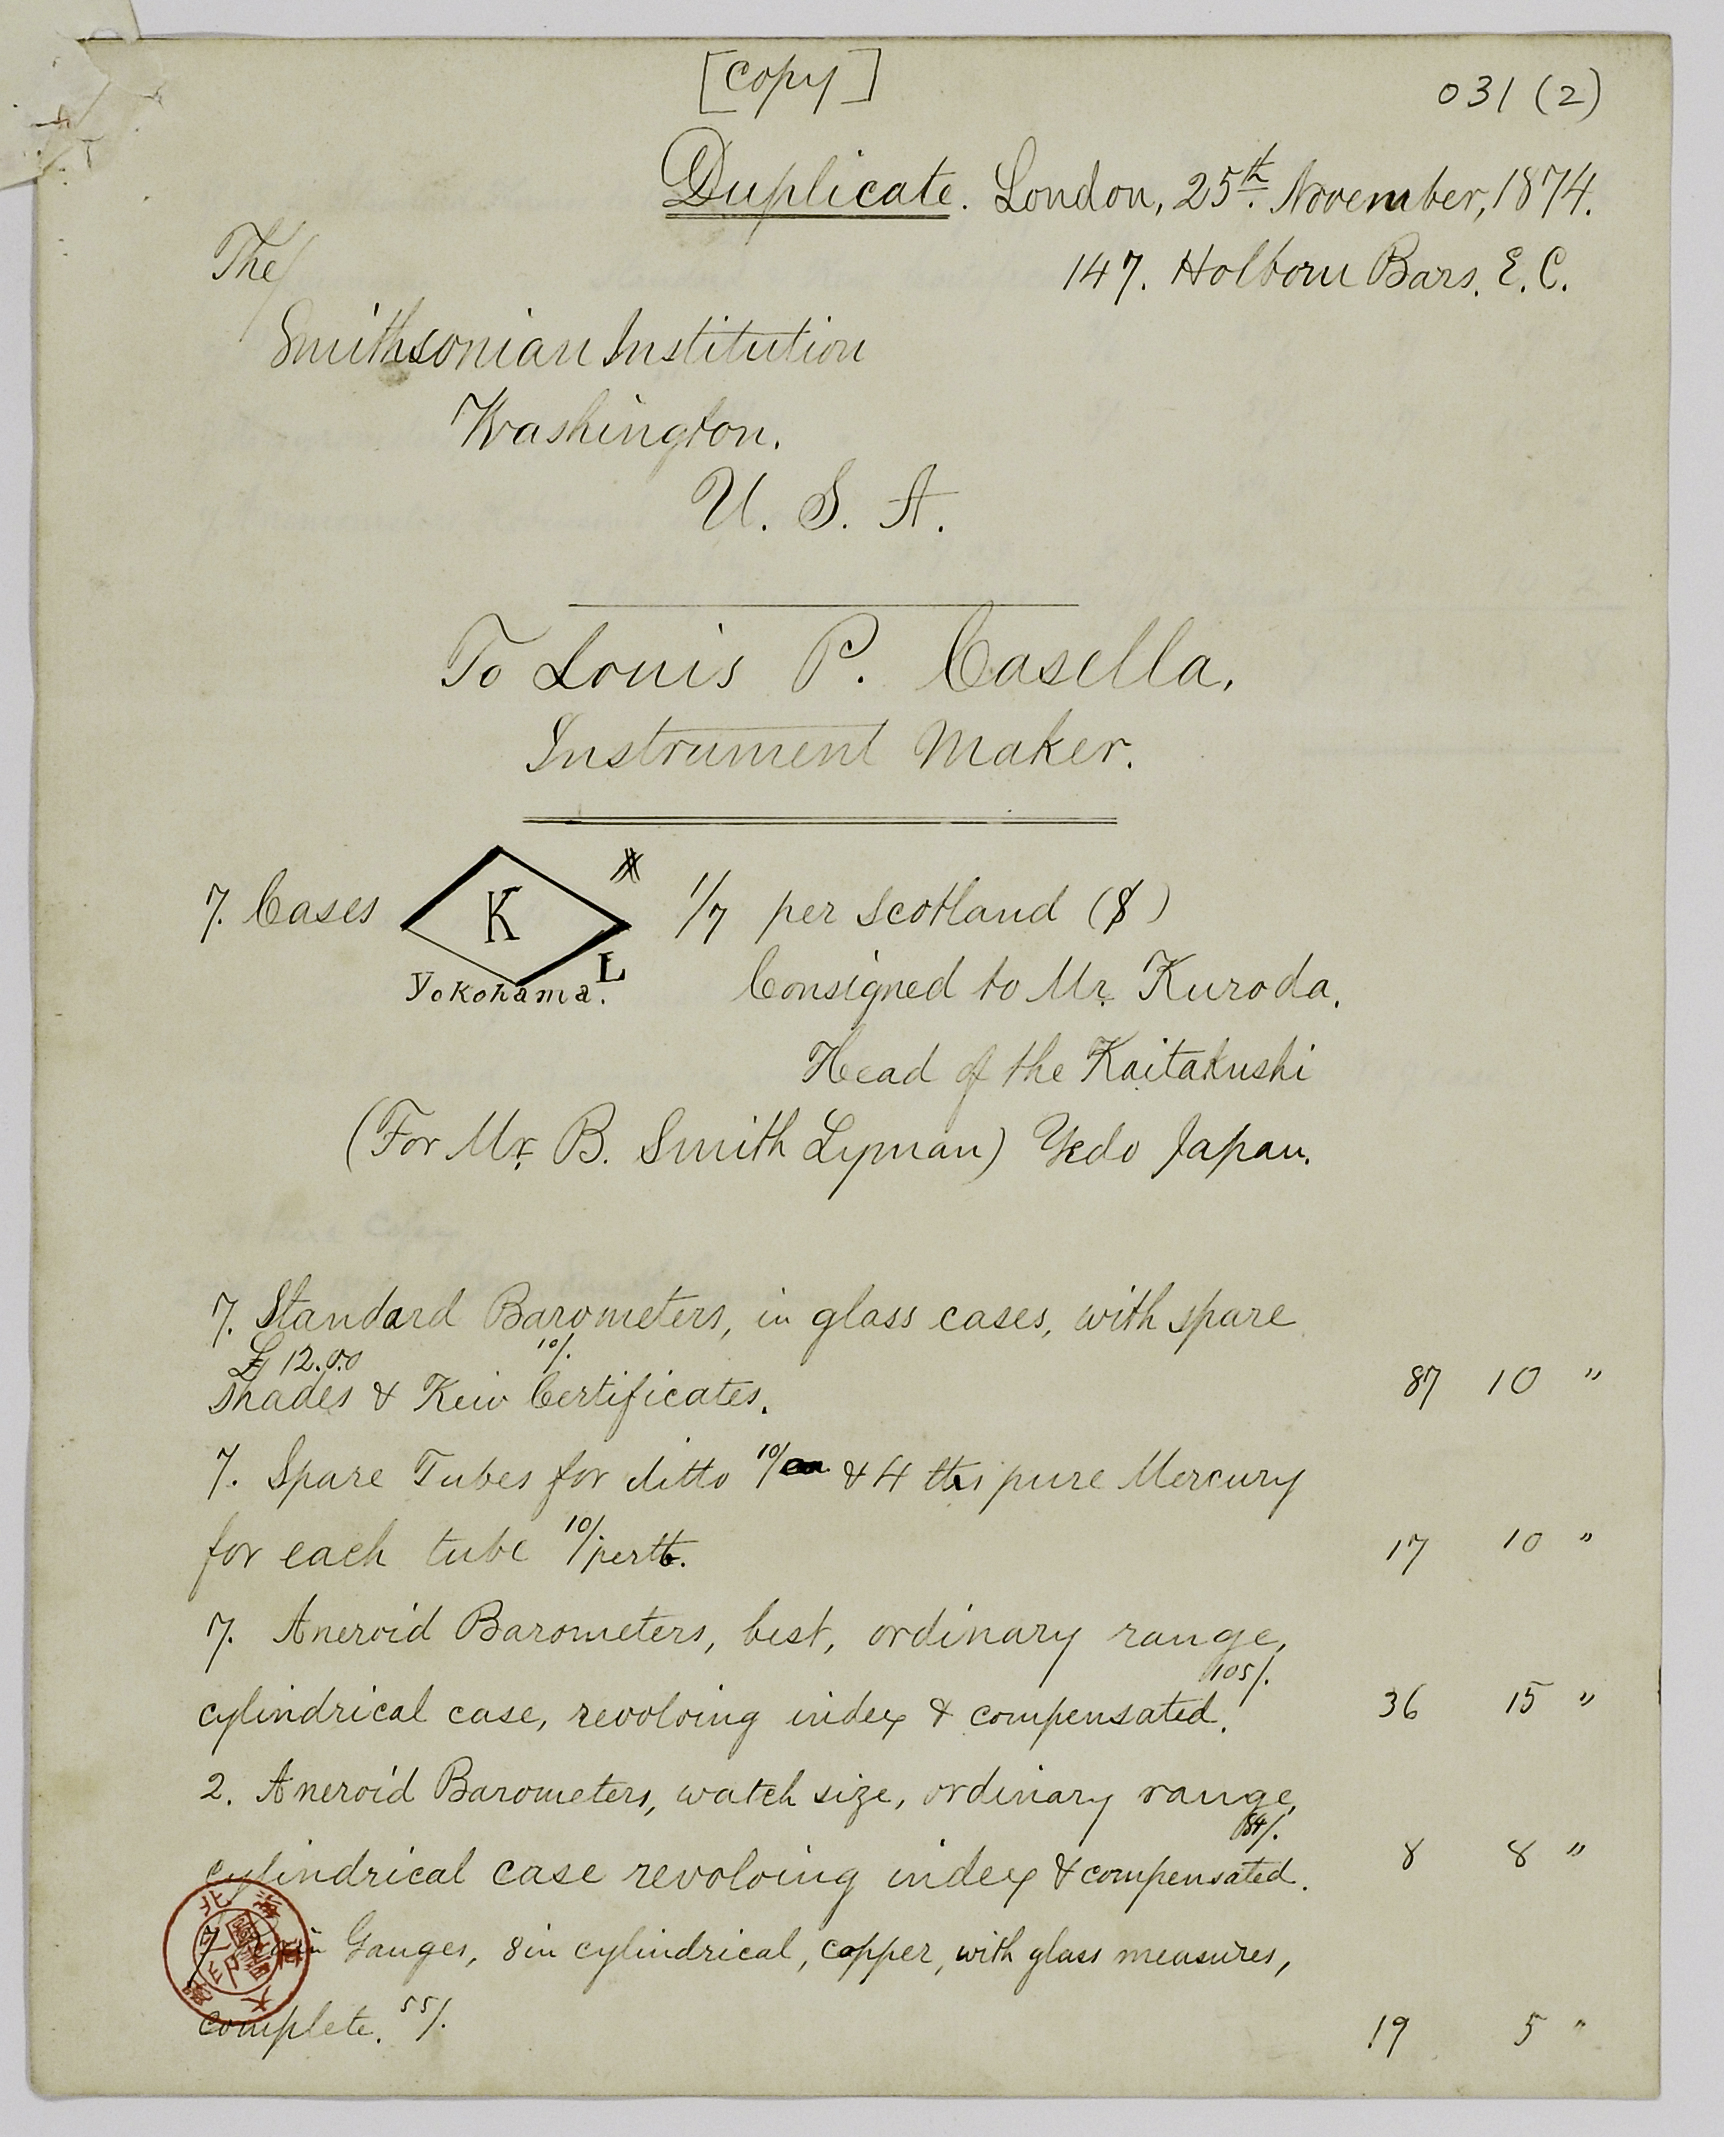 [Copy]
031 (2)
Duplicate. London, 25th. November, 1874.
147. Holborn Bars. E. C.
The
Smithsonian Institution
Washington.
U. S. A.
To Louis P. Casella,
Instrument Maker.
7. Cases K L 1/7 per Scotland ($)
Yokohama.
Consigned to Mr. Kuroda.
Head of the Kaitakushi
(For Mr. B. Smith Lyman) Yedo Japan.
7. Standard Barometers, in glass cases, with spare
£ 12.0.0 10/.
shades & Kew Certificates. 87 10 "
7. Spare Tubes for ditto 10/ & 4 lbs pure Mercury
for each tube 10/ per lb. 17 10 "
7. Aneroid Barometers, best, ordinary range,
105/.
cylindrical case, revolving index & compensated. 36 15 "
2. Aneroid Barometers, watch size, ordinary range,
84/.
cylindrical case revolving index & compensated. 8 8 "
7 Rain Gauges, 8in cylindrical, copper, with glass measures,
complete. 55/. 19 5 "
北海道大學
圖書印